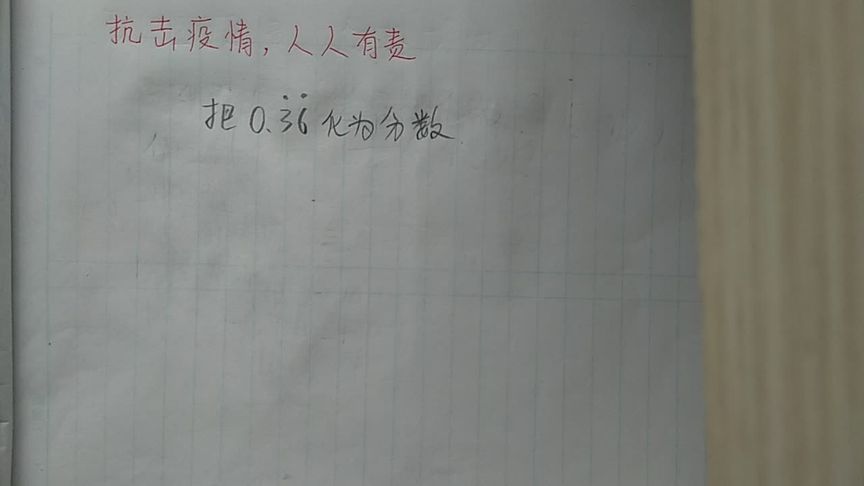 抗击疫情,人人有责
把0.3̇6̇化为分数